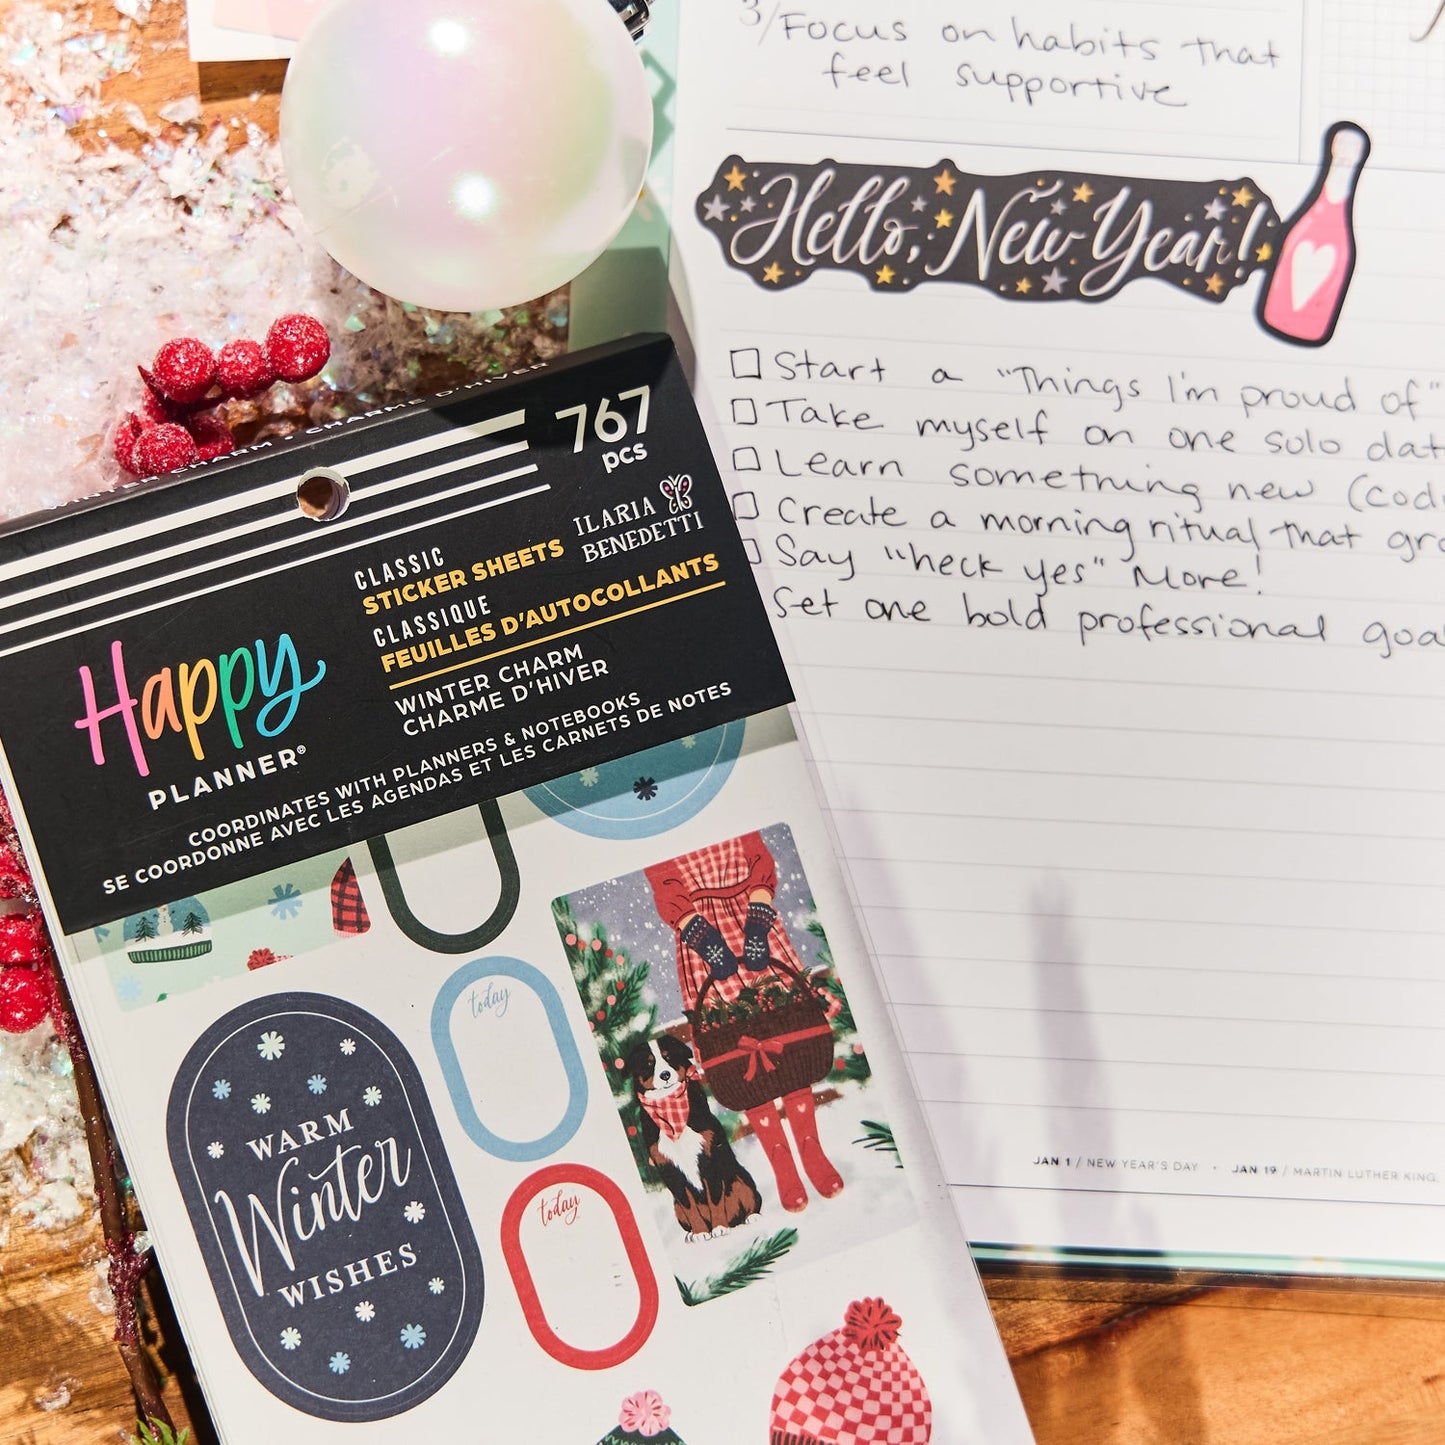 3/Focus on habits that
feel supportive
Hello, New Year!
Start a "Things I'm proud of"
Take myself on one solo
Learn something new
Create a morning ritual that
Say "heck yes" More!
Set one bold professional
JAN 1 / NEW YEAR'S DAY • JAN 19 / MARTIN LUTHER KING,
CHARM • CHARME D'HIVER
767
pcs
ILARIA
BENEDETTI
CLASSIC
STICKER SHEETS
CLASSIQUE
FEUILLES D'AUTOCOLLANTS
WINTER CHARM
CHARME D'HIVER
Happy
PLANNER®
COORDINATES WITH PLANNERS & NOTEBOOKS
SE COORDONNE AVEC LES AGENDAS ET LES CARNETS DE NOTES
today
WARM
Winter
WISHES
today